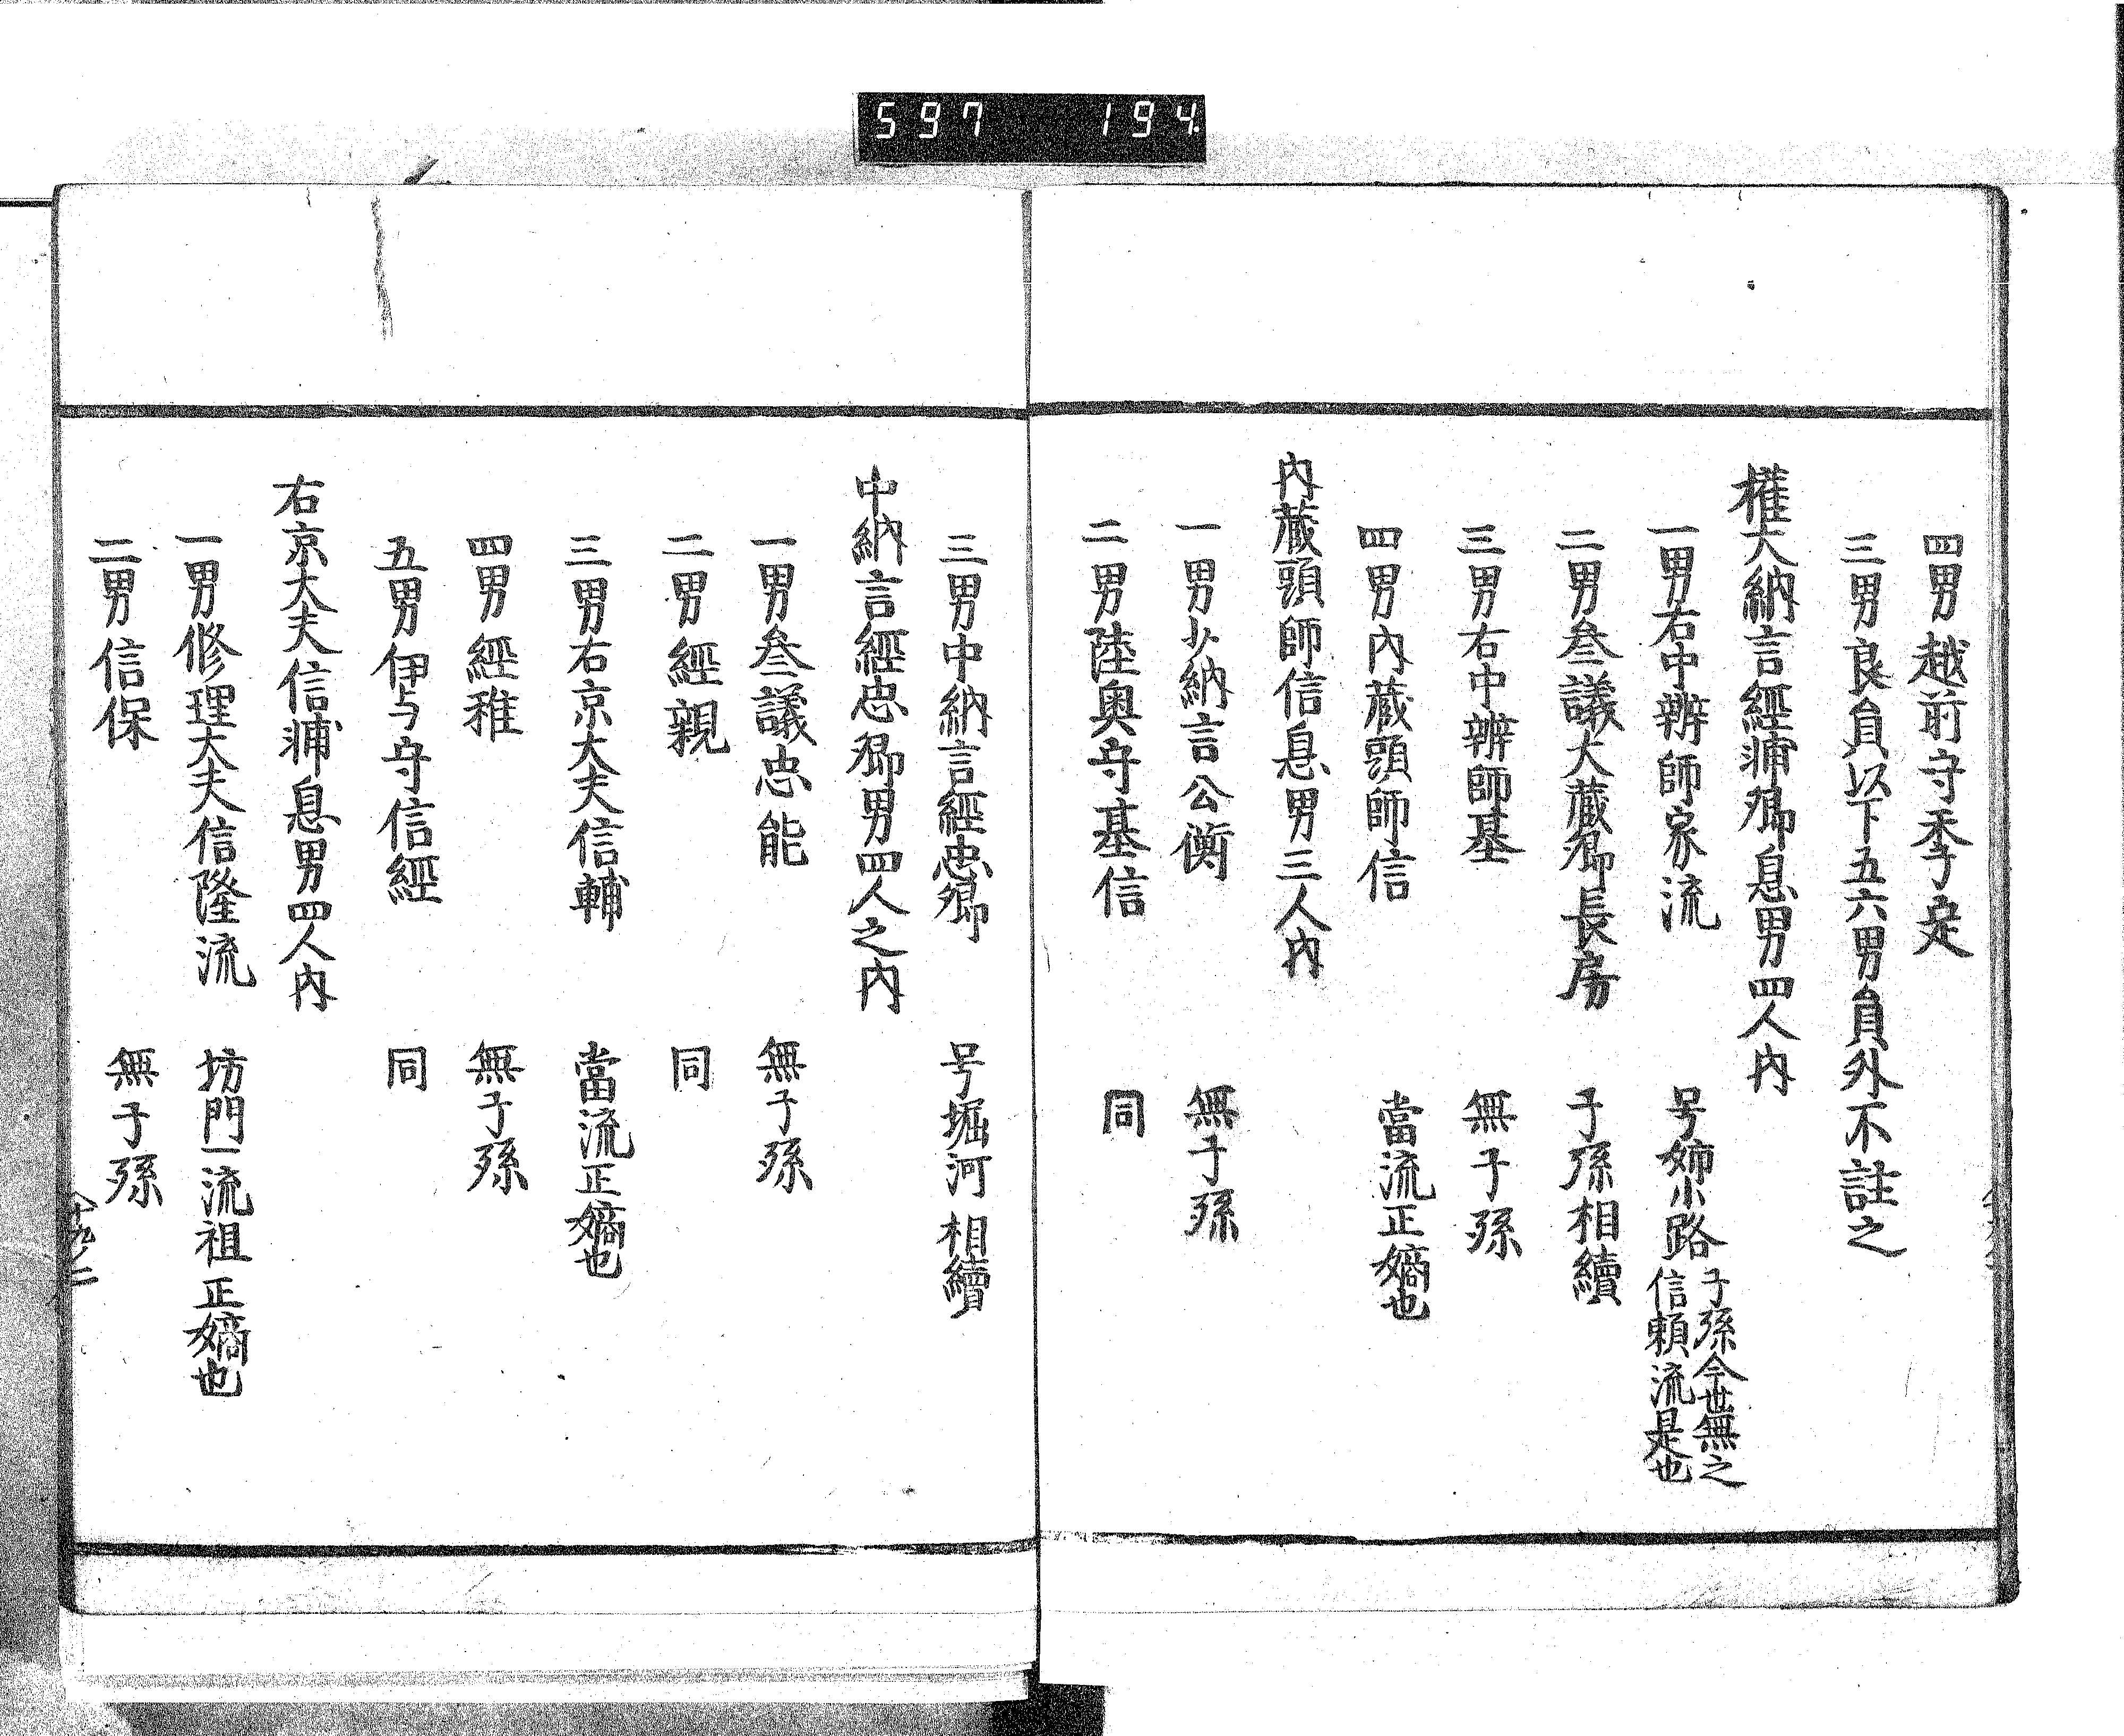 597 194
四男越前守季定
三男良貟以下五六男貟外不註之
權大納言經輔卿息男四人內
一男右中辨師家流 号姉小路 子孫今世無之
信頼流是也
二男叅議大藏卿長房 子孫相續
三男右中辨師基 無子孫
四男內藏頭師信 當流正嫡也
內藏頭師信息男三人內
一男少納言公衡 無子孫
二男陸奧守基信 同
三男中納言經忠卿 号堀河 相續
中納言經忠卿男四人之內
一男叅議忠能 無子孫
二男經親 同
三男右京大夫信輔 當流正嫡也
四男經稚 無子孫
五男伊与守信經 同
右京大夫信輔息男四人內
一男修理大夫信隆流 坊門一流祖正嫡也
二男信保 無子孫